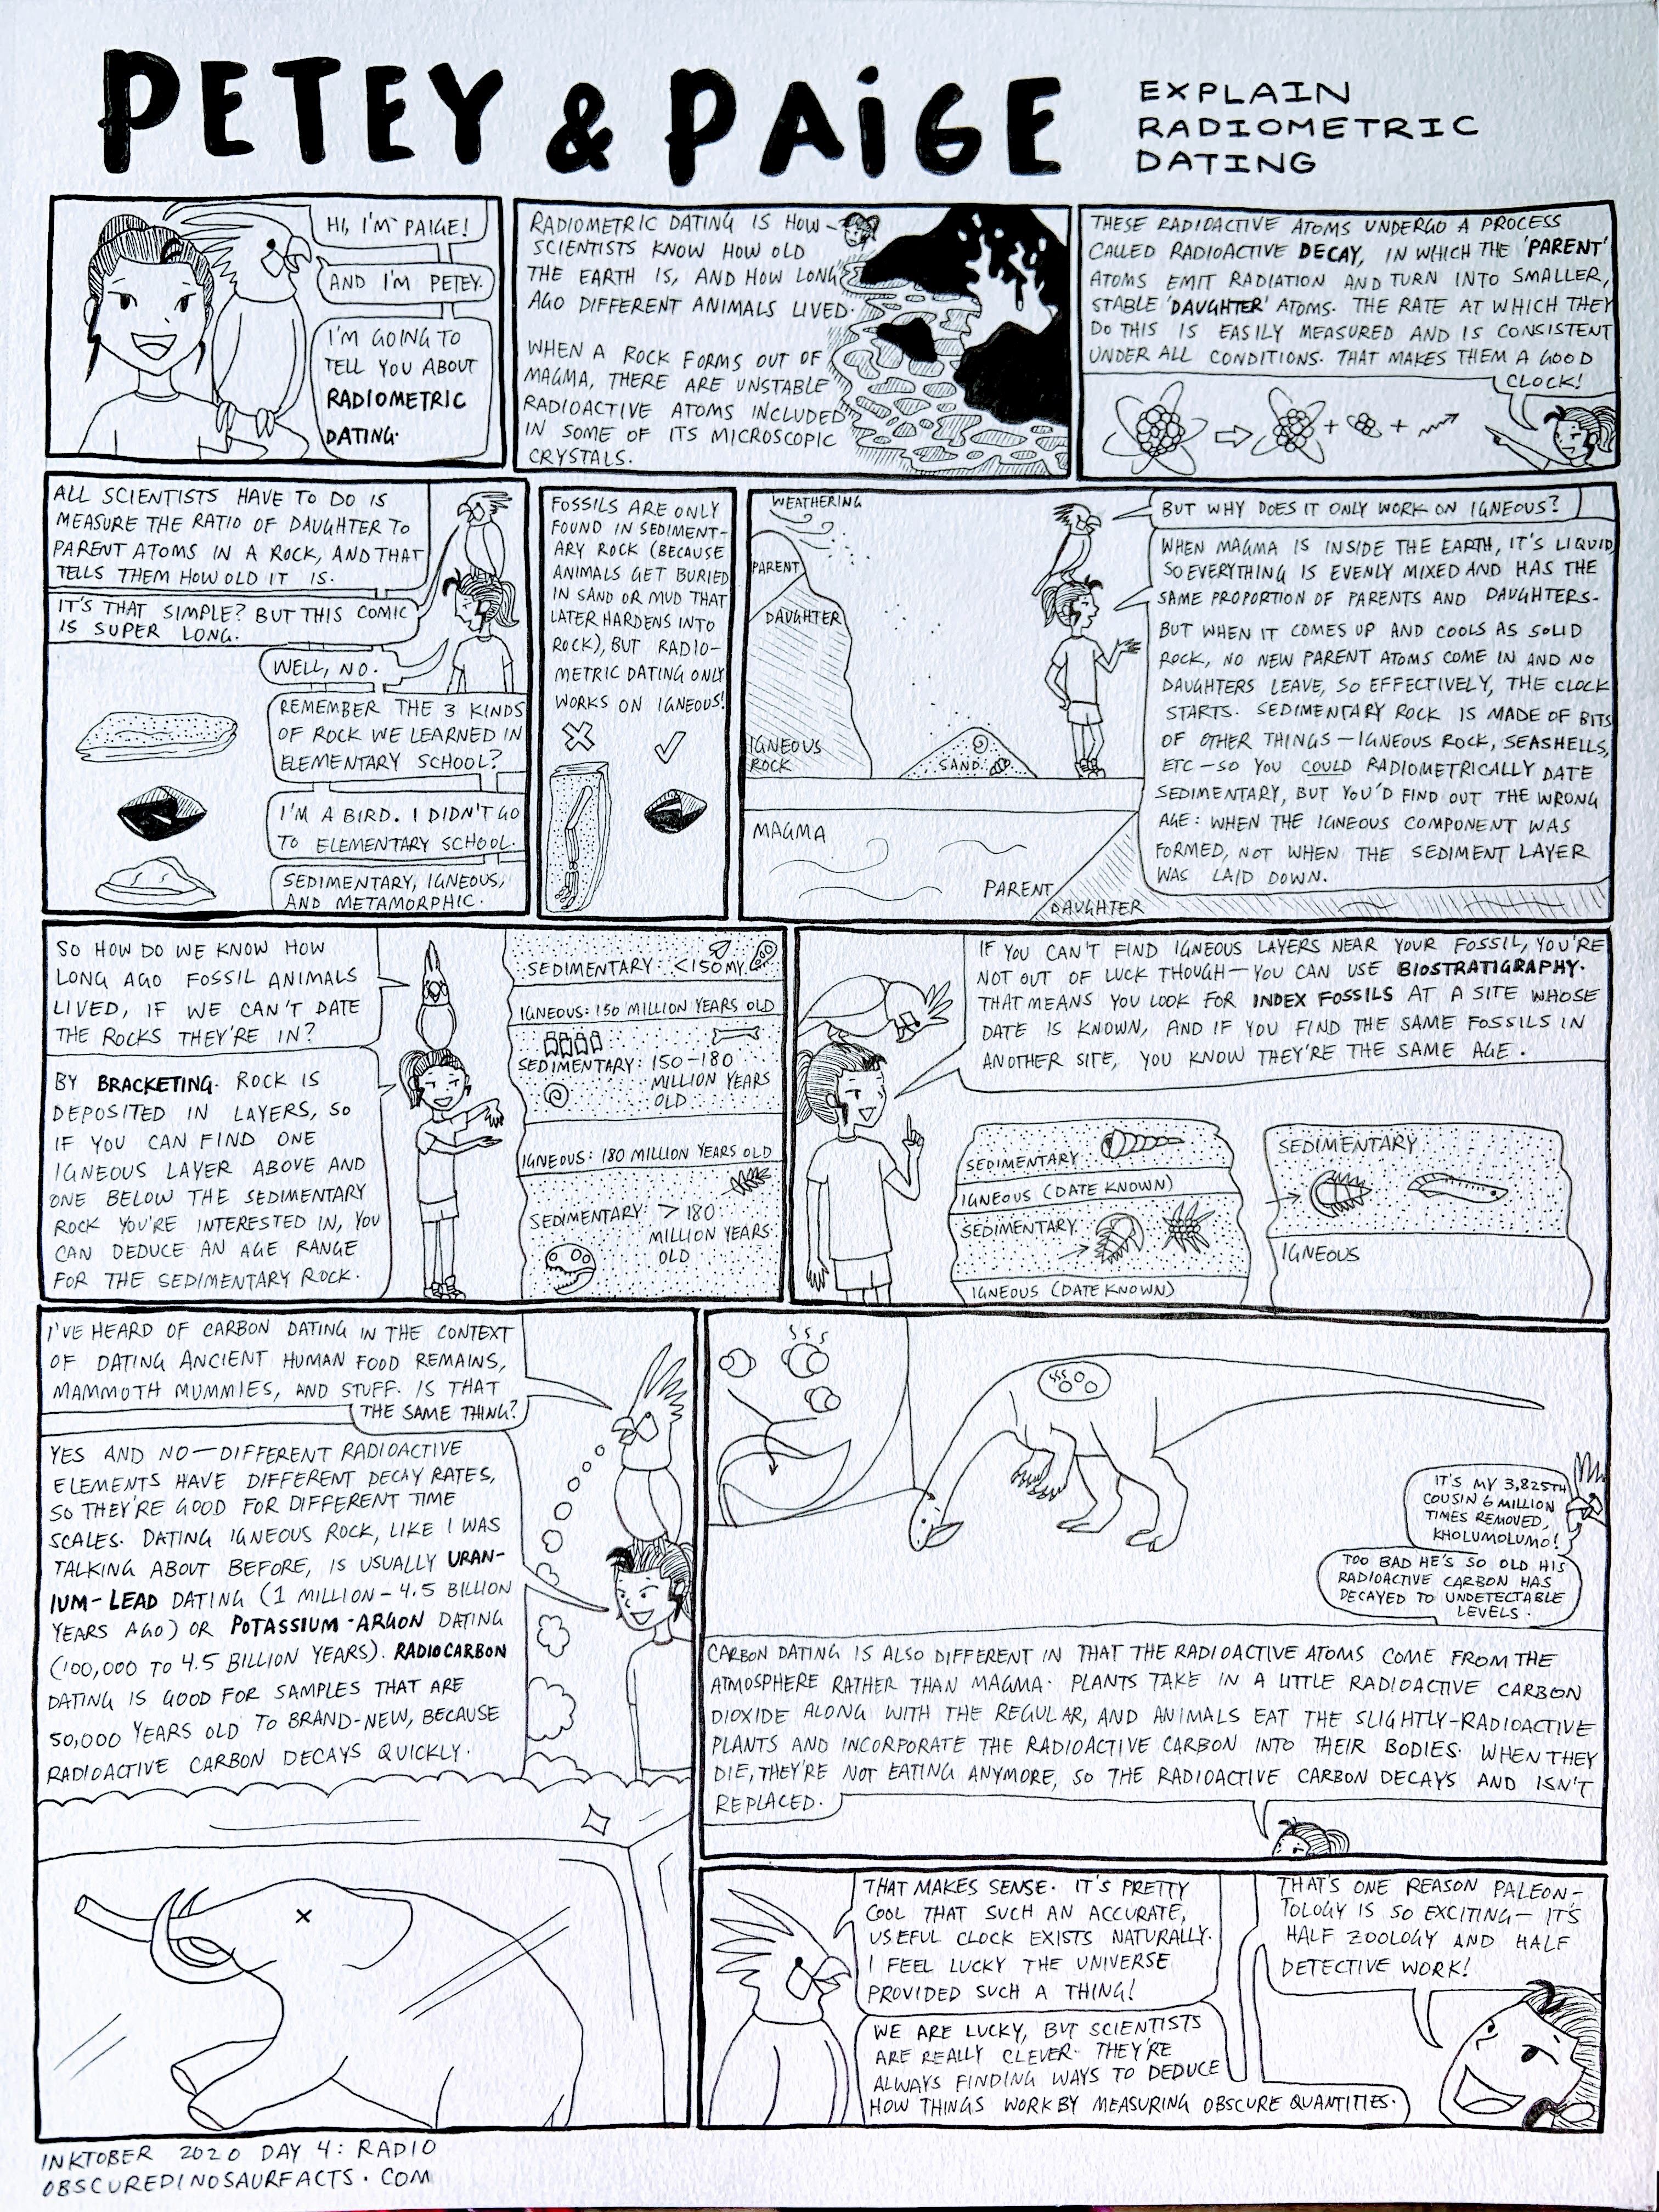 PETEY & PAIGE
EXPLAIN
RADIOMETRIC
DATING
HI, I'M PAIGE!
AND I'M PETEY.
I'M GOING TO
TELL YOU ABOUT
RADIOMETRIC
DATING.
RADIOMETRIC DATING IS HOW
SCIENTISTS KNOW HOW OLD
THE EARTH IS, AND HOW LONG
AGO DIFFERENT ANIMALS LIVED.
WHEN A ROCK FORMS OUT OF
MAGMA, THERE ARE UNSTABLE
RADIOACTIVE ATOMS INCLUDED
IN SOME OF ITS MICROSCOPIC
CRYSTALS.
THESE RADIOACTIVE ATOMS UNDERGO A PROCESS
CALLED RADIOACTIVE DECAY, IN WHICH THE 'PARENT'
ATOMS EMIT RADIATION AND TURN INTO SMALLER,
STABLE 'DAUGHTER' ATOMS. THE RATE AT WHICH THEY
DO THIS IS EASILY MEASURED AND IS CONSISTENT
UNDER ALL CONDITIONS. THAT MAKES THEM A GOOD
CLOCK!
+ +
ALL SCIENTISTS HAVE TO DO IS
MEASURE THE RATIO OF DAUGHTER TO
PARENT ATOMS IN A ROCK, AND THAT
TELLS THEM HOW OLD IT IS.
IT'S THAT SIMPLE? BUT THIS COMIC
IS SUPER LONG.
WELL, NO.
REMEMBER THE 3 KINDS
OF ROCK WE LEARNED IN
ELEMENTARY SCHOOL?
I'M A BIRD. I DIDN'T GO
TO ELEMENTARY SCHOOL.
SEDIMENTARY, IGNEOUS,
AND METAMORPHIC.
FOSSILS ARE ONLY
FOUND IN SEDIMENT-
ARY ROCK (BECAUSE
ANIMALS GET BURIED
IN SAND OR MUD THAT
LATER HARDENS INTO
ROCK), BUT RADIO-
METRIC DATING ONLY
WORKS ON IGNEOUS!
WEATHERING
PARENT
DAUGHTER
IGNEOUS
ROCK
SAND
MAGMA
PARENT
DAUGHTER
BUT WHY DOES IT ONLY WORK ON IGNEOUS?
WHEN MAGMA IS INSIDE THE EARTH, IT'S LIQUID,
SO EVERYTHING IS EVENLY MIXED AND HAS THE
SAME PROPORTION OF PARENTS AND DAUGHTERS.
BUT WHEN IT COMES UP AND COOLS AS SOLID
ROCK, NO NEW PARENT ATOMS COME IN AND NO
DAUGHTERS LEAVE, SO EFFECTIVELY, THE CLOCK
STARTS. SEDIMENTARY ROCK IS MADE OF BITS
OF OTHER THINGS—IGNEOUS ROCK, SEASHELLS,
ETC—SO YOU COULD RADIOMETRICALLY DATE
SEDIMENTARY, BUT YOU'D FIND OUT THE WRONG
AGE: WHEN THE IGNEOUS COMPONENT WAS
FORMED, NOT WHEN THE SEDIMENT LAYER
WAS LAID DOWN.
SO HOW DO WE KNOW HOW
LONG AGO FOSSIL ANIMALS
LIVED, IF WE CAN'T DATE
THE ROCKS THEY'RE IN?
BY BRACKETING. ROCK IS
DEPOSITED IN LAYERS, SO
IF YOU CAN FIND ONE
IGNEOUS LAYER ABOVE AND
ONE BELOW THE SEDIMENTARY
ROCK YOU'RE INTERESTED IN, YOU
CAN DEDUCE AN AGE RANGE
FOR THE SEDIMENTARY ROCK.
SEDIMENTARY: <150 MY
IGNEOUS: 150 MILLION YEARS OLD
SEDIMENTARY: 150-180
MILLION YEARS
OLD
IGNEOUS: 180 MILLION YEARS OLD
SEDIMENTARY: > 180
MILLION YEARS
OLD
IF YOU CAN'T FIND IGNEOUS LAYERS NEAR YOUR FOSSIL, YOU'RE
NOT OUT OF LUCK THOUGH—YOU CAN USE BIOSTRATIGRAPHY.
THAT MEANS YOU LOOK FOR INDEX FOSSILS AT A SITE WHOSE
DATE IS KNOWN, AND IF YOU FIND THE SAME FOSSILS IN
ANOTHER SITE, YOU KNOW THEY'RE THE SAME AGE.
SEDIMENTARY
IGNEOUS (DATE KNOWN)
SEDIMENTARY
IGNEOUS (DATE KNOWN)
SEDIMENTARY
IGNEOUS
I'VE HEARD OF CARBON DATING IN THE CONTEXT
OF DATING ANCIENT HUMAN FOOD REMAINS,
MAMMOTH MUMMIES, AND STUFF. IS THAT
THE SAME THING?
YES AND NO—DIFFERENT RADIOACTIVE
ELEMENTS HAVE DIFFERENT DECAY RATES,
SO THEY'RE GOOD FOR DIFFERENT TIME
SCALES. DATING IGNEOUS ROCK, LIKE I WAS
TALKING ABOUT BEFORE, IS USUALLY URAN-
IUM-LEAD DATING (1 MILLION-4.5 BILLION
YEARS AGO) OR POTASSIUM-ARGON DATING
(100,000 TO 4.5 BILLION YEARS). RADIOCARBON
DATING IS GOOD FOR SAMPLES THAT ARE
50,000 YEARS OLD TO BRAND-NEW, BECAUSE
RADIOACTIVE CARBON DECAYS QUICKLY.
IT'S MY 3,825TH
COUSIN 6 MILLION
TIMES REMOVED,
KHOLUMOLUMO!
TOO BAD HE'S SO OLD HIS
RADIOACTIVE CARBON HAS
DECAYED TO UNDETECTABLE
LEVELS.
CARBON DATING IS ALSO DIFFERENT IN THAT THE RADIOACTIVE ATOMS COME FROM THE
ATMOSPHERE RATHER THAN MAGMA. PLANTS TAKE IN A LITTLE RADIOACTIVE CARBON
DIOXIDE ALONG WITH THE REGULAR, AND ANIMALS EAT THE SLIGHTLY-RADIOACTIVE
PLANTS AND INCORPORATE THE RADIOACTIVE CARBON INTO THEIR BODIES. WHEN THEY
DIE, THEY'RE NOT EATING ANYMORE, SO THE RADIOACTIVE CARBON DECAYS AND ISN'T
REPLACED.
THAT MAKES SENSE. IT'S PRETTY
COOL THAT SUCH AN ACCURATE,
USEFUL CLOCK EXISTS NATURALLY.
I FEEL LUCKY THE UNIVERSE
PROVIDED SUCH A THING!
WE ARE LUCKY, BUT SCIENTISTS
ARE REALLY CLEVER. THEY'RE
ALWAYS FINDING WAYS TO DEDUCE
HOW THINGS WORK BY MEASURING OBSCURE QUANTITIES.
THAT'S ONE REASON PALEON-
TOLOGY IS SO EXCITING—IT'S
HALF ZOOLOGY AND HALF
DETECTIVE WORK!
INKTOBER 2020 DAY 4: RADIO
OBSCUREDINOSAURFACTS.COM